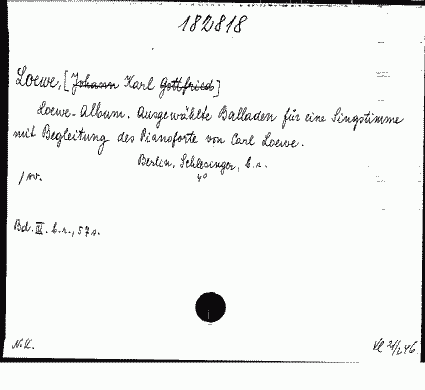 182818
Loewe, [Johann Karl Gottfried]
Loewe-Album. Ausgewählte Balladen für eine Singstimme
mit Begleitung des Pianoforte von Carl Loewe.
Berlin, Schlesinger, b.r.
4°
Bd. III. b.r., 57 s.
N.K.